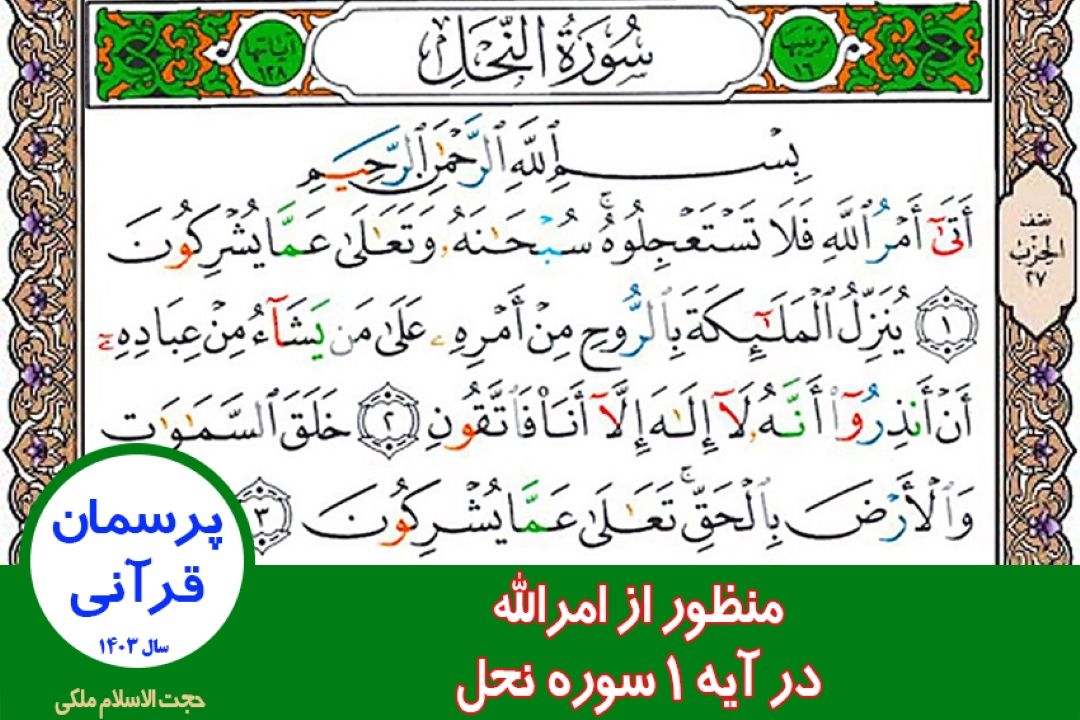 آیاتها ۱۲۸
سُورَةُ النَّحْلِ
ترتیبها ۱۶
بِسْمِ ٱللَّهِ ٱلرَّحْمَٰنِ ٱلرَّحِيمِ
أَتَىٰٓ أَمْرُ ٱللَّهِ فَلَا تَسْتَعْجِلُوهُ ۚ سُبْحَٰنَهُۥ وَتَعَٰلَىٰ عَمَّا يُشْرِكُونَ
۱ يُنَزِّلُ ٱلْمَلَٰٓئِكَةَ بِٱلرُّوحِ مِنْ أَمْرِهِۦ عَلَىٰ مَن يَشَآءُ مِنْ عِبَادِهِۦٓ
أَنْ أَنذِرُوٓا۟ أَنَّهُۥ لَآ إِلَٰهَ إِلَّآ أَنَا۠ فَٱتَّقُونِ ۲ خَلَقَ ٱلسَّمَٰوَٰتِ
وَٱلْأَرْضَ بِٱلْحَقِّ ۚ تَعَٰلَىٰ عَمَّا يُشْرِكُونَ ۳
نصف
الحزب
۲۷
پرسمان
قرآنی
سال ۱۴۰۳
حجت الاسلام ملکی
منظور از امرالله
در آیه ۱ سوره نحل